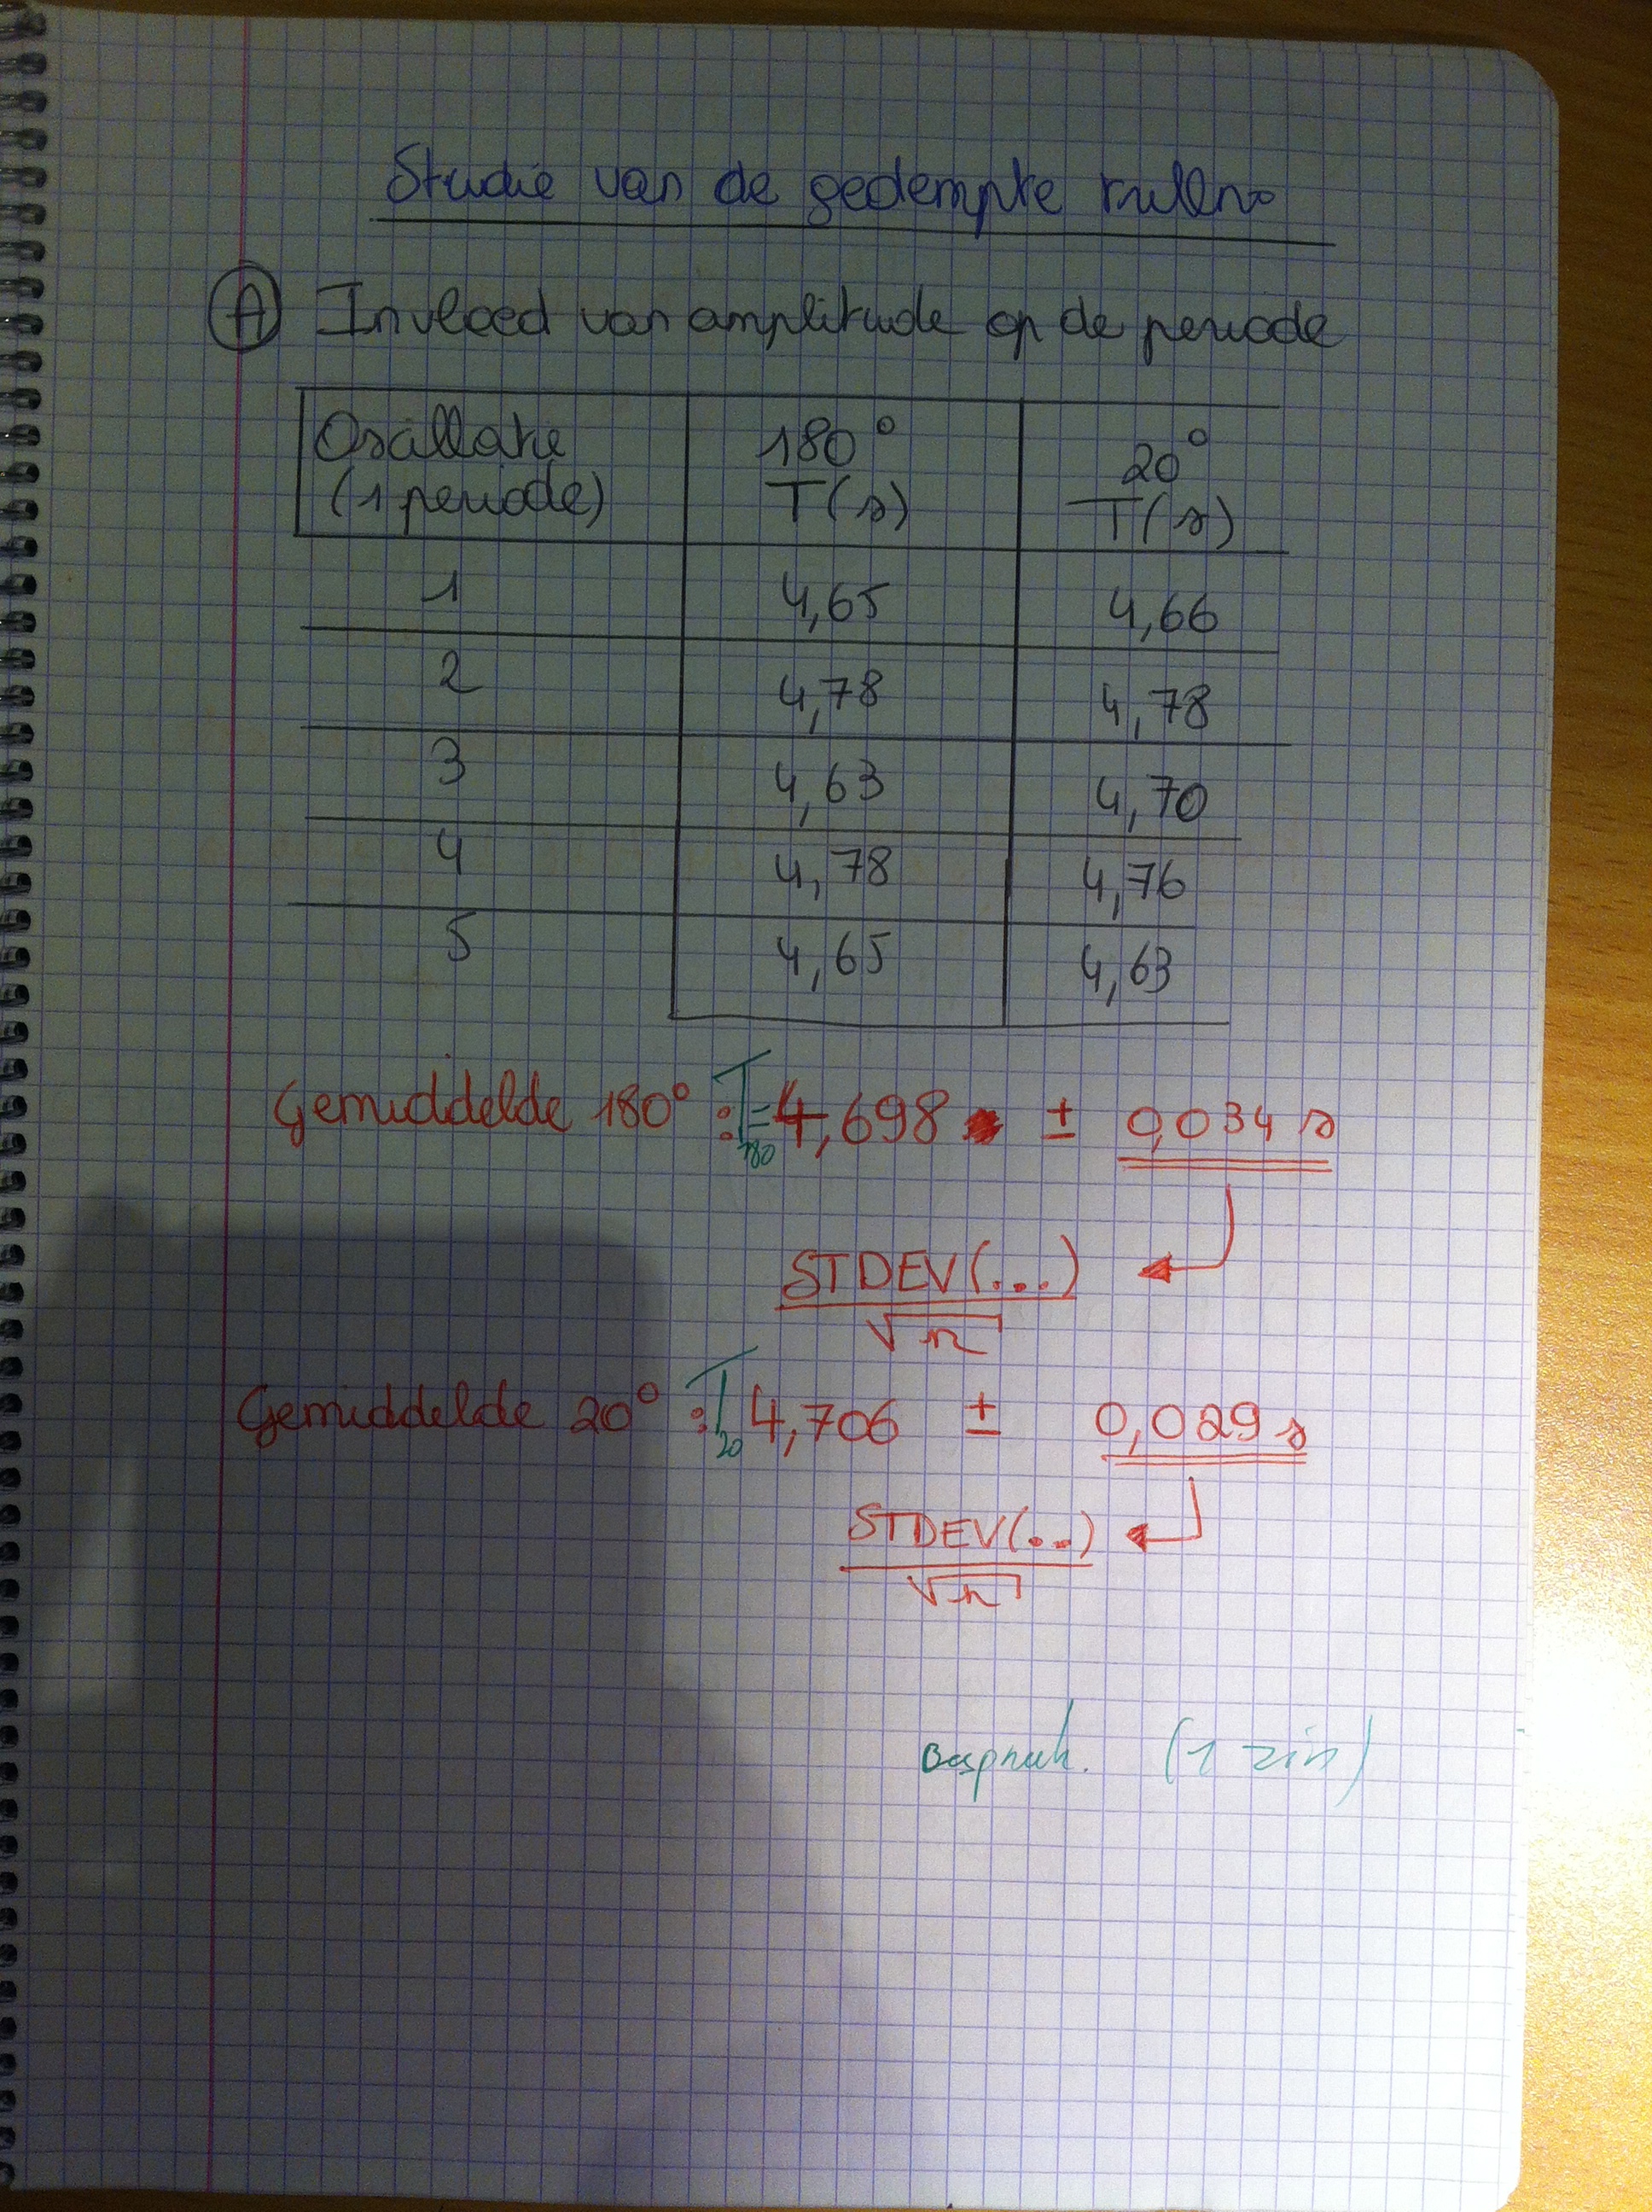 Studie van de gedempte trilling
A Invloed van amplitude op de periode
Oscillatie 180° 20°
(1 periode) T(s) T(s)
1 4,65 4,66
2 4,78 4,78
3 4,63 4,70
4 4,78 4,76
5 4,65 4,63
Gemiddelde 180° : T180 = 4,698 ± 0,034 s
STDEV(...)
√n
Gemiddelde 20° : T20 4,706 ± 0,029 s
STDEV(..)
√n
(1 zin)